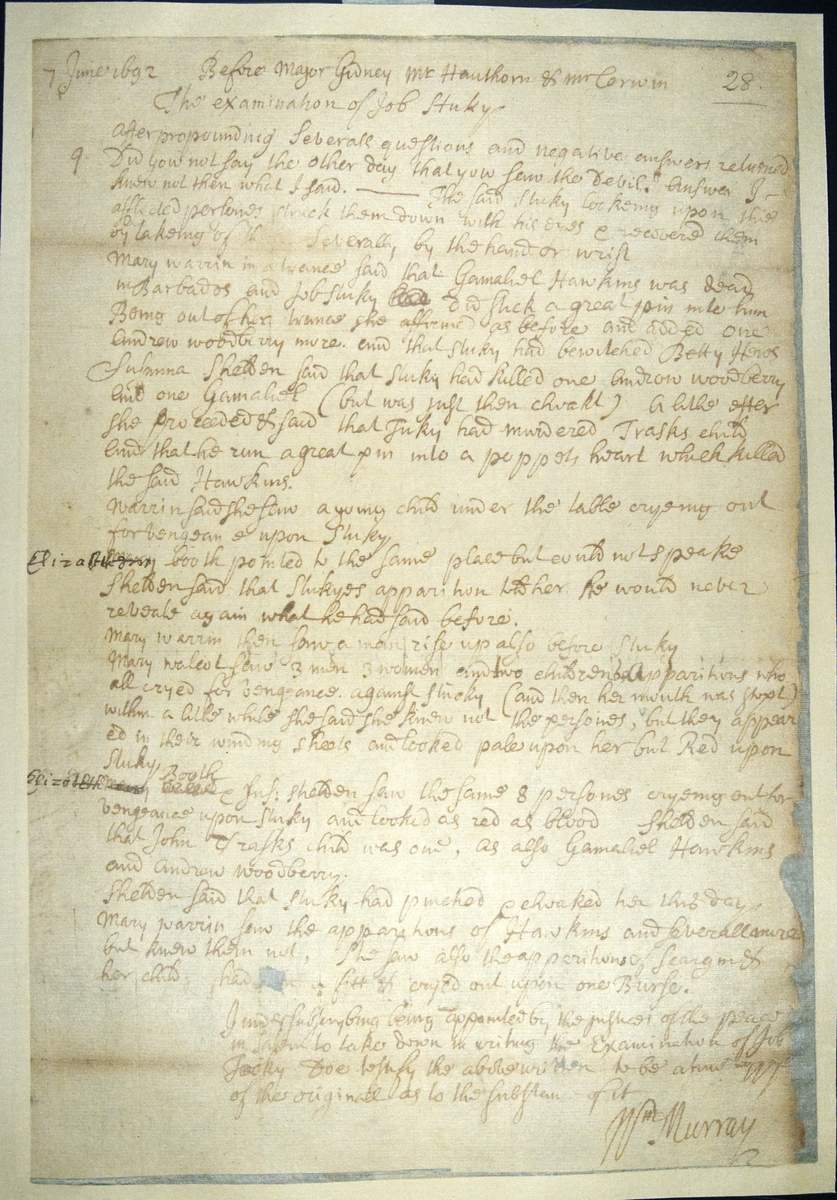 7 June 1692 Before Major Gidney Mr Hauthorn & mr Corwin 28.
The examination of Job Stuky
After propounding Severall questions and negative answers returned
q. Did yow not say the other day that yow saw the Devil? Answer I
knew not then what I said. —— The said Stuky lookeing upon the
afflicted persones struck them down with his eyes & recovered them
by takeing of Severally by the hand or wrist
Mary warrin in a trance said that Gamaliel Hawkins was dead
in Barbados and Job Stuky did stick a great pin into him
Being out of her trance she affirmed as before and added one
Andrew woodberry more. and that Stuky had bewitched Betty Hews
Susanna Shelden said that Stuky had killed one Andrew woodberry
and one Gamaliel (but was just then choakt) A litle efter
she proceeded & said that Tuky had murdered Trasks child
and that he run a great pin into a poppets heart which killed
the said Hawkins.
Warrin said she saw a young child under the table cryeing out
for vengeance upon Stuky
Elizabeth booth pointed to the same place but could not speake
Shelden said that Stukyes apparition told her he would never
reveale again what he had said before.
Mary warrin then saw a man rise up also before Stuky
Mary walcot saw 3 men 3 women and two children apparitions who
all cryed for vengeance against Stucky (and then her mouth was stopt)
within a litle while she said she knew not the persones, but they appear
ed in their winding sheets and looked pale upon her but Red upon
Stuky
Elizabeth Booth & Sus: Shelden saw the same 8 persones cryeing out for
vengeance upon Stuky and looked as red as blood Shelden said
that John Trasks child was one, as also Gamaliel Hawkins
and Andrew Woodberry.
Shelden said that Stuky had pinched & choaked her this day
Mary warrin saw the apparitions of Hawkins and severall more
but knew them not, she saw also the apparitions of &
her child, had fitt & cryed out upon one Burse.
I underscribing being appointed by the justices of the peace
in Salem to take down in wryting the Examination of Job
Tooky Doe testify the above written to be a true
of the originall as to the substan of it
Wm. Murray